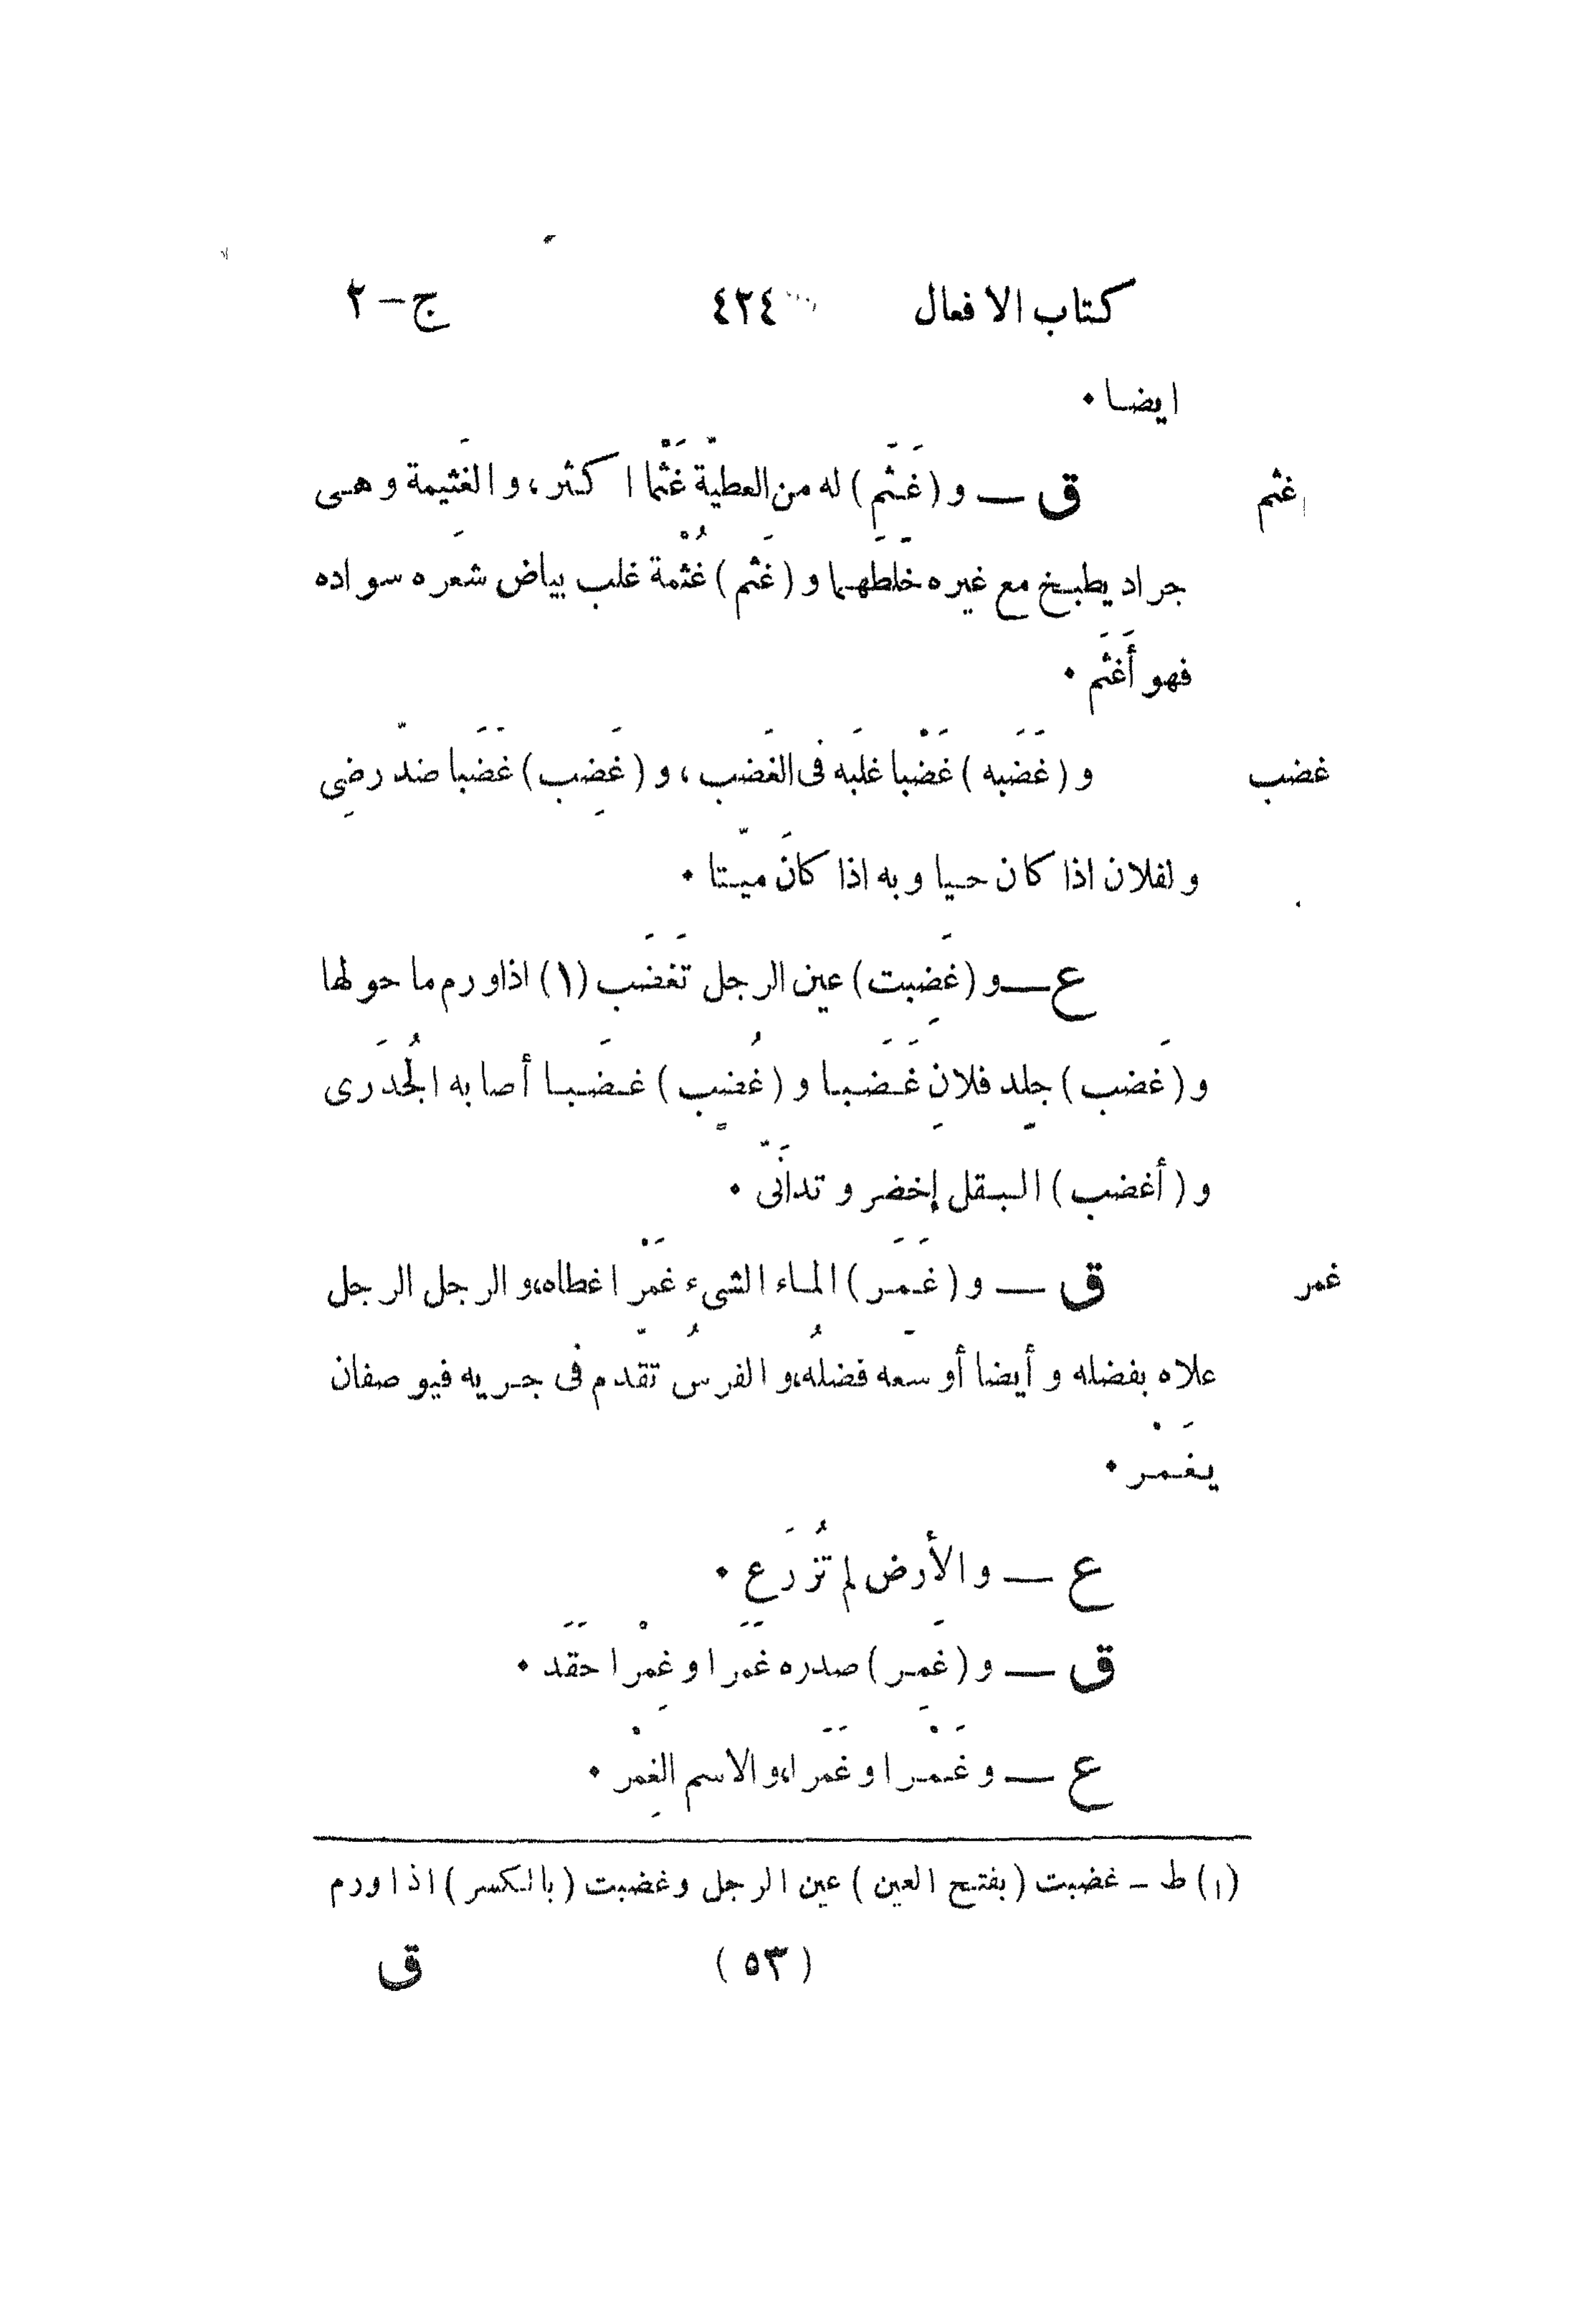 كتاب الافعال ٤٢٤ ج – ٢
ايضا ٠
غثم ق — و (غَثَم) له من العطيّة غَثْما اكثر، و الغَثيمة وهى
جراد يطبخ مع غيره خلَطَهما و (غثَم) غُثْمة غلب بياض شعَره سواده
فهو أَغثَم ٠
غضب و (غَضَبه) غَضْبا غلَبه فى الغضَب، و (غَضِب) غَضَبا ضدّ رضِى
و لفلان اذا كان حيا و به اذا كانَ ميّتا ٠
ع — و (غَضِبت) عين الرجل تَغضَب (١) اذا ورم ما حولها
و (غَضب) جلِد فلانٍ غَضَبا و (غُضِب) غضَبا أصابه الجُدَرى
و (أغضب) البقل إخضر و تدانَىّ ٠
غمر ق — و (غَمَر) الماء الشىء غَمْرا غطاه، و الرجل الرجل
علاه بفضله و أيضا أوسعه فضلُه، و الفرسُ تقدّم فى جريه فيوصفان
يغَمْر ٠
ع — و الأرض لم تُزرَع ٠
ق — و (غَمِر) صدره غَمَرا و غِمْرا حَقَد ٠
ع — و غَمْرا و غَمَرا، و الاسم الغِمْر ٠
(١) ط – غضبت (بفتح العين) عين الرجل وغضبت (بالكسر) اذا ورم
(٥٣) ق